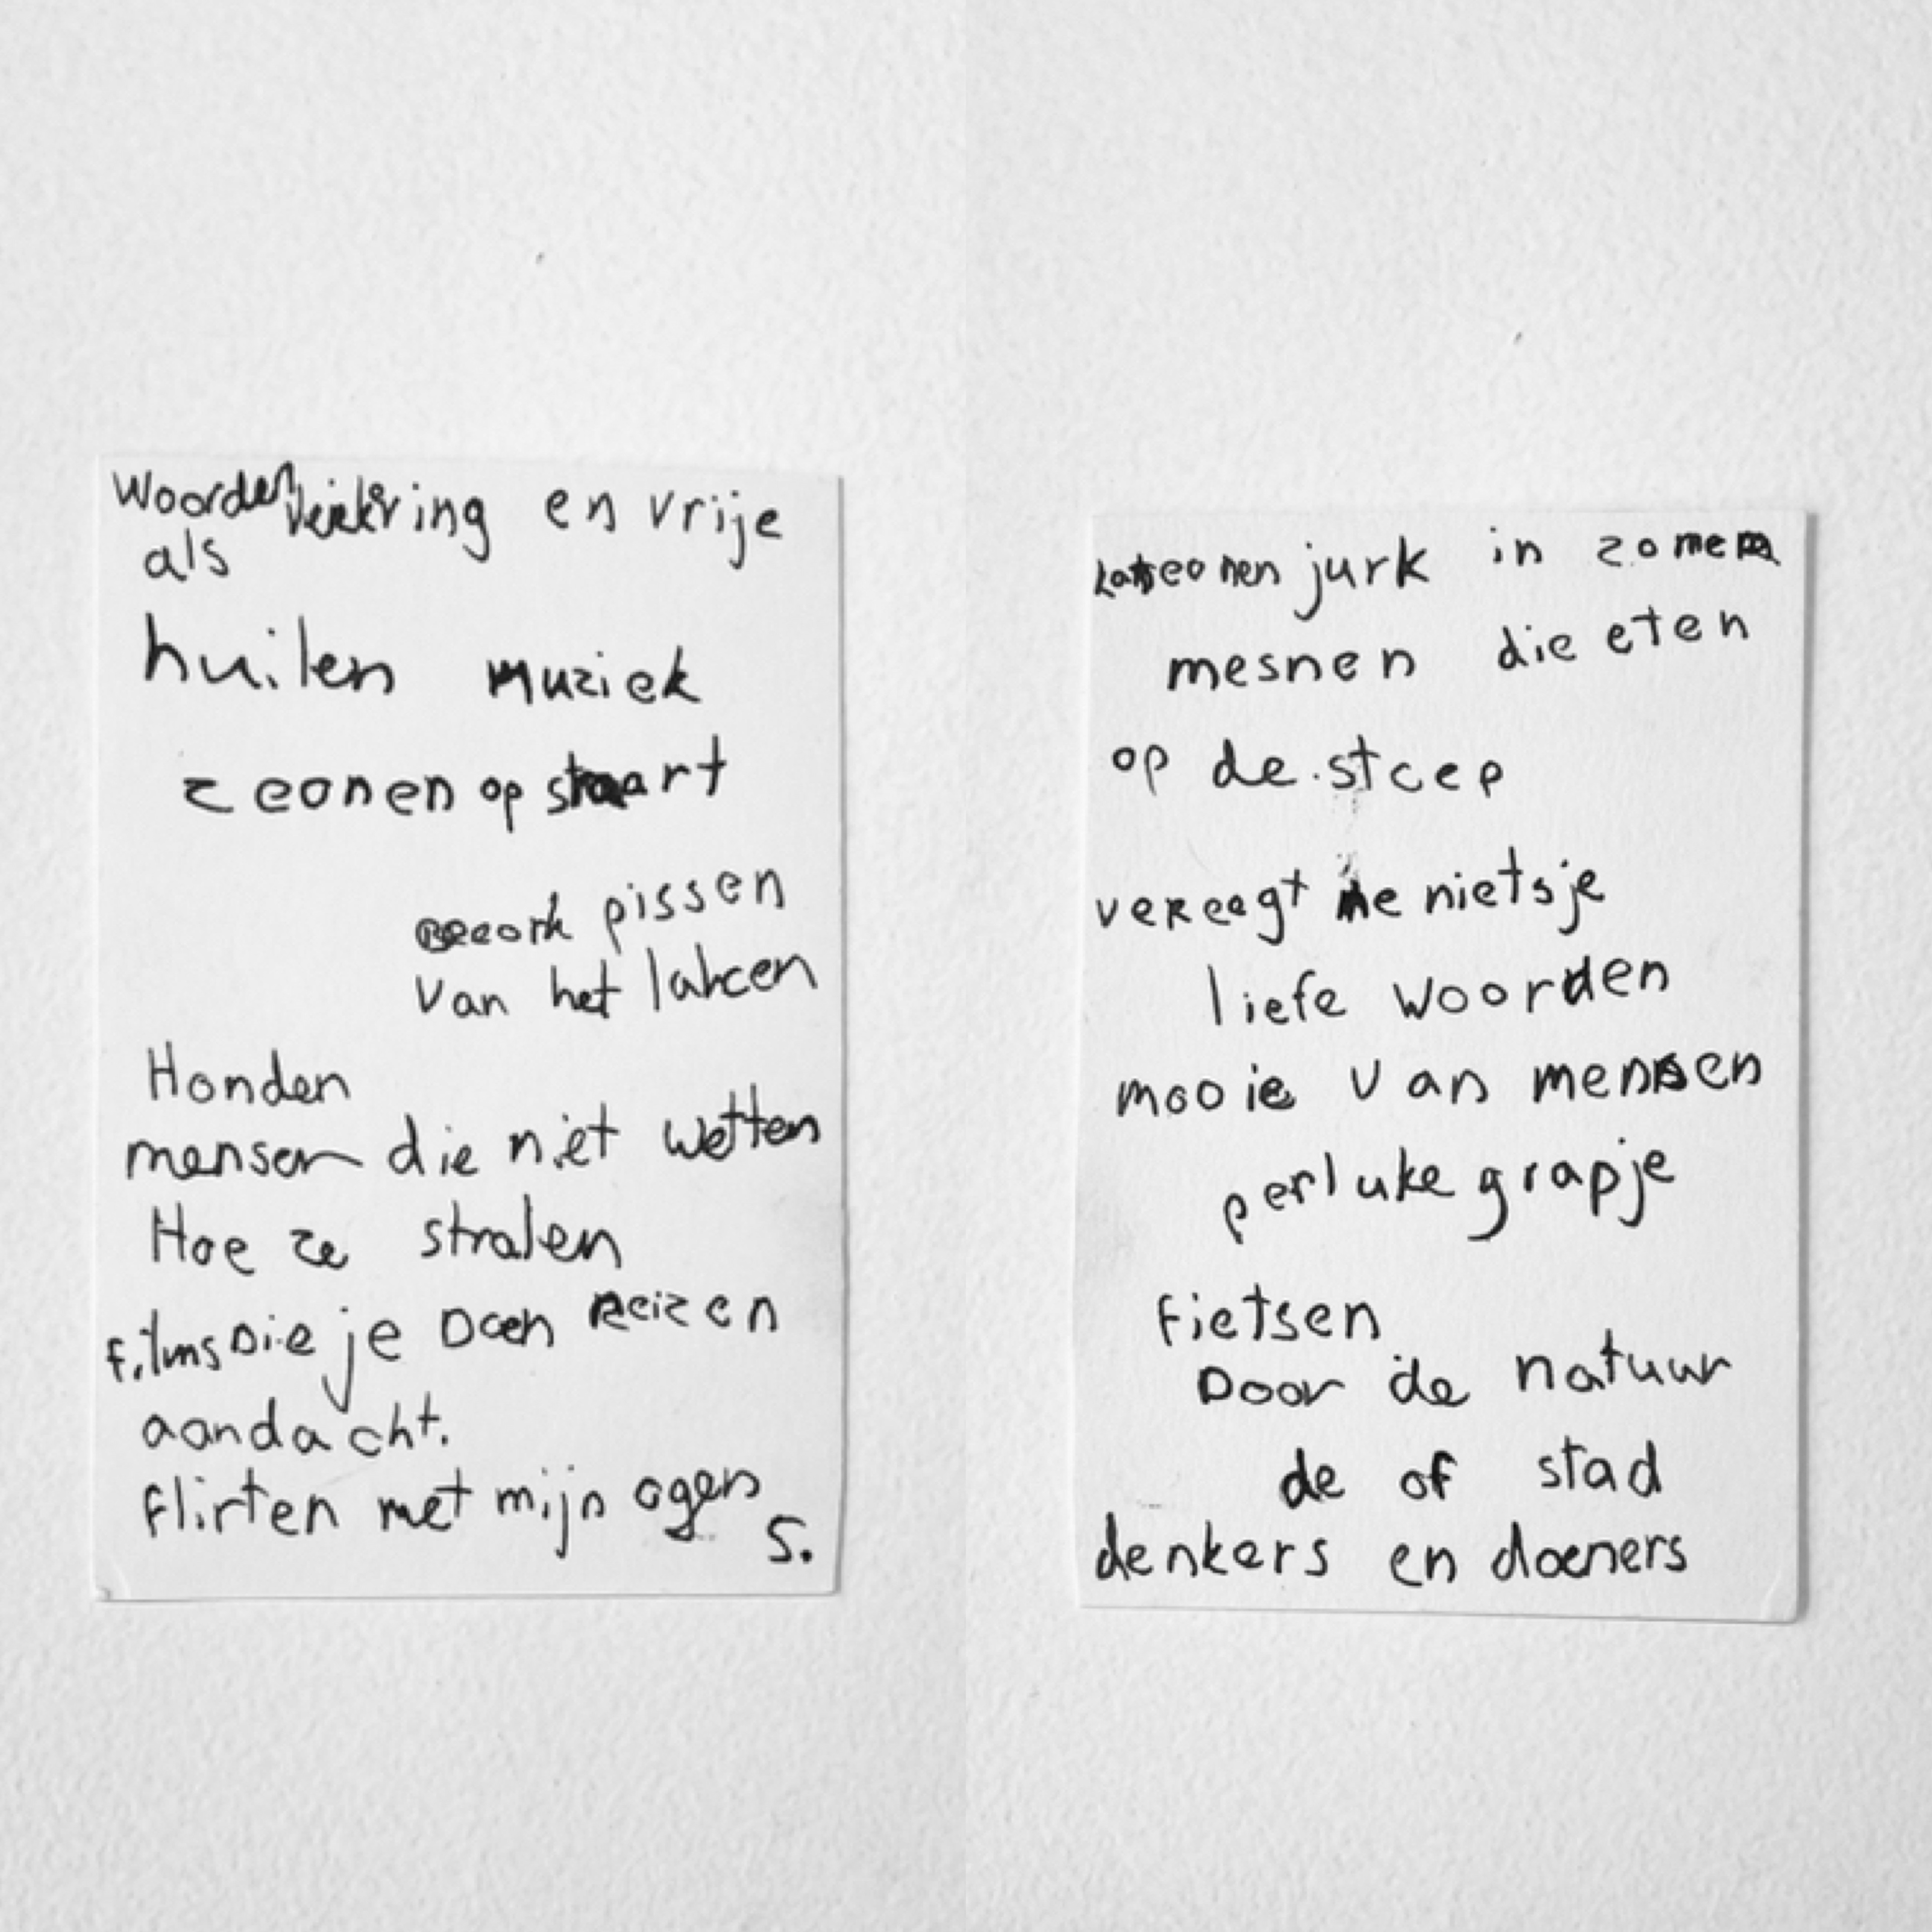 Woorden en vrije
als
huilen muziek
zeonen op
pissen
van het lahcen
Honden
mensen die niet wetten
Hoe ze stralen
films Die je Doen Reizen
aandacht.
flirten met mijn ogen
S.
jurk in zomer
mesnen die eten
op de stoep
vereegt me nietsje
liefe woorden
mooie van mensen
perluke grapje
fietsen
Door de natuur
de of stad
denkers en doeners